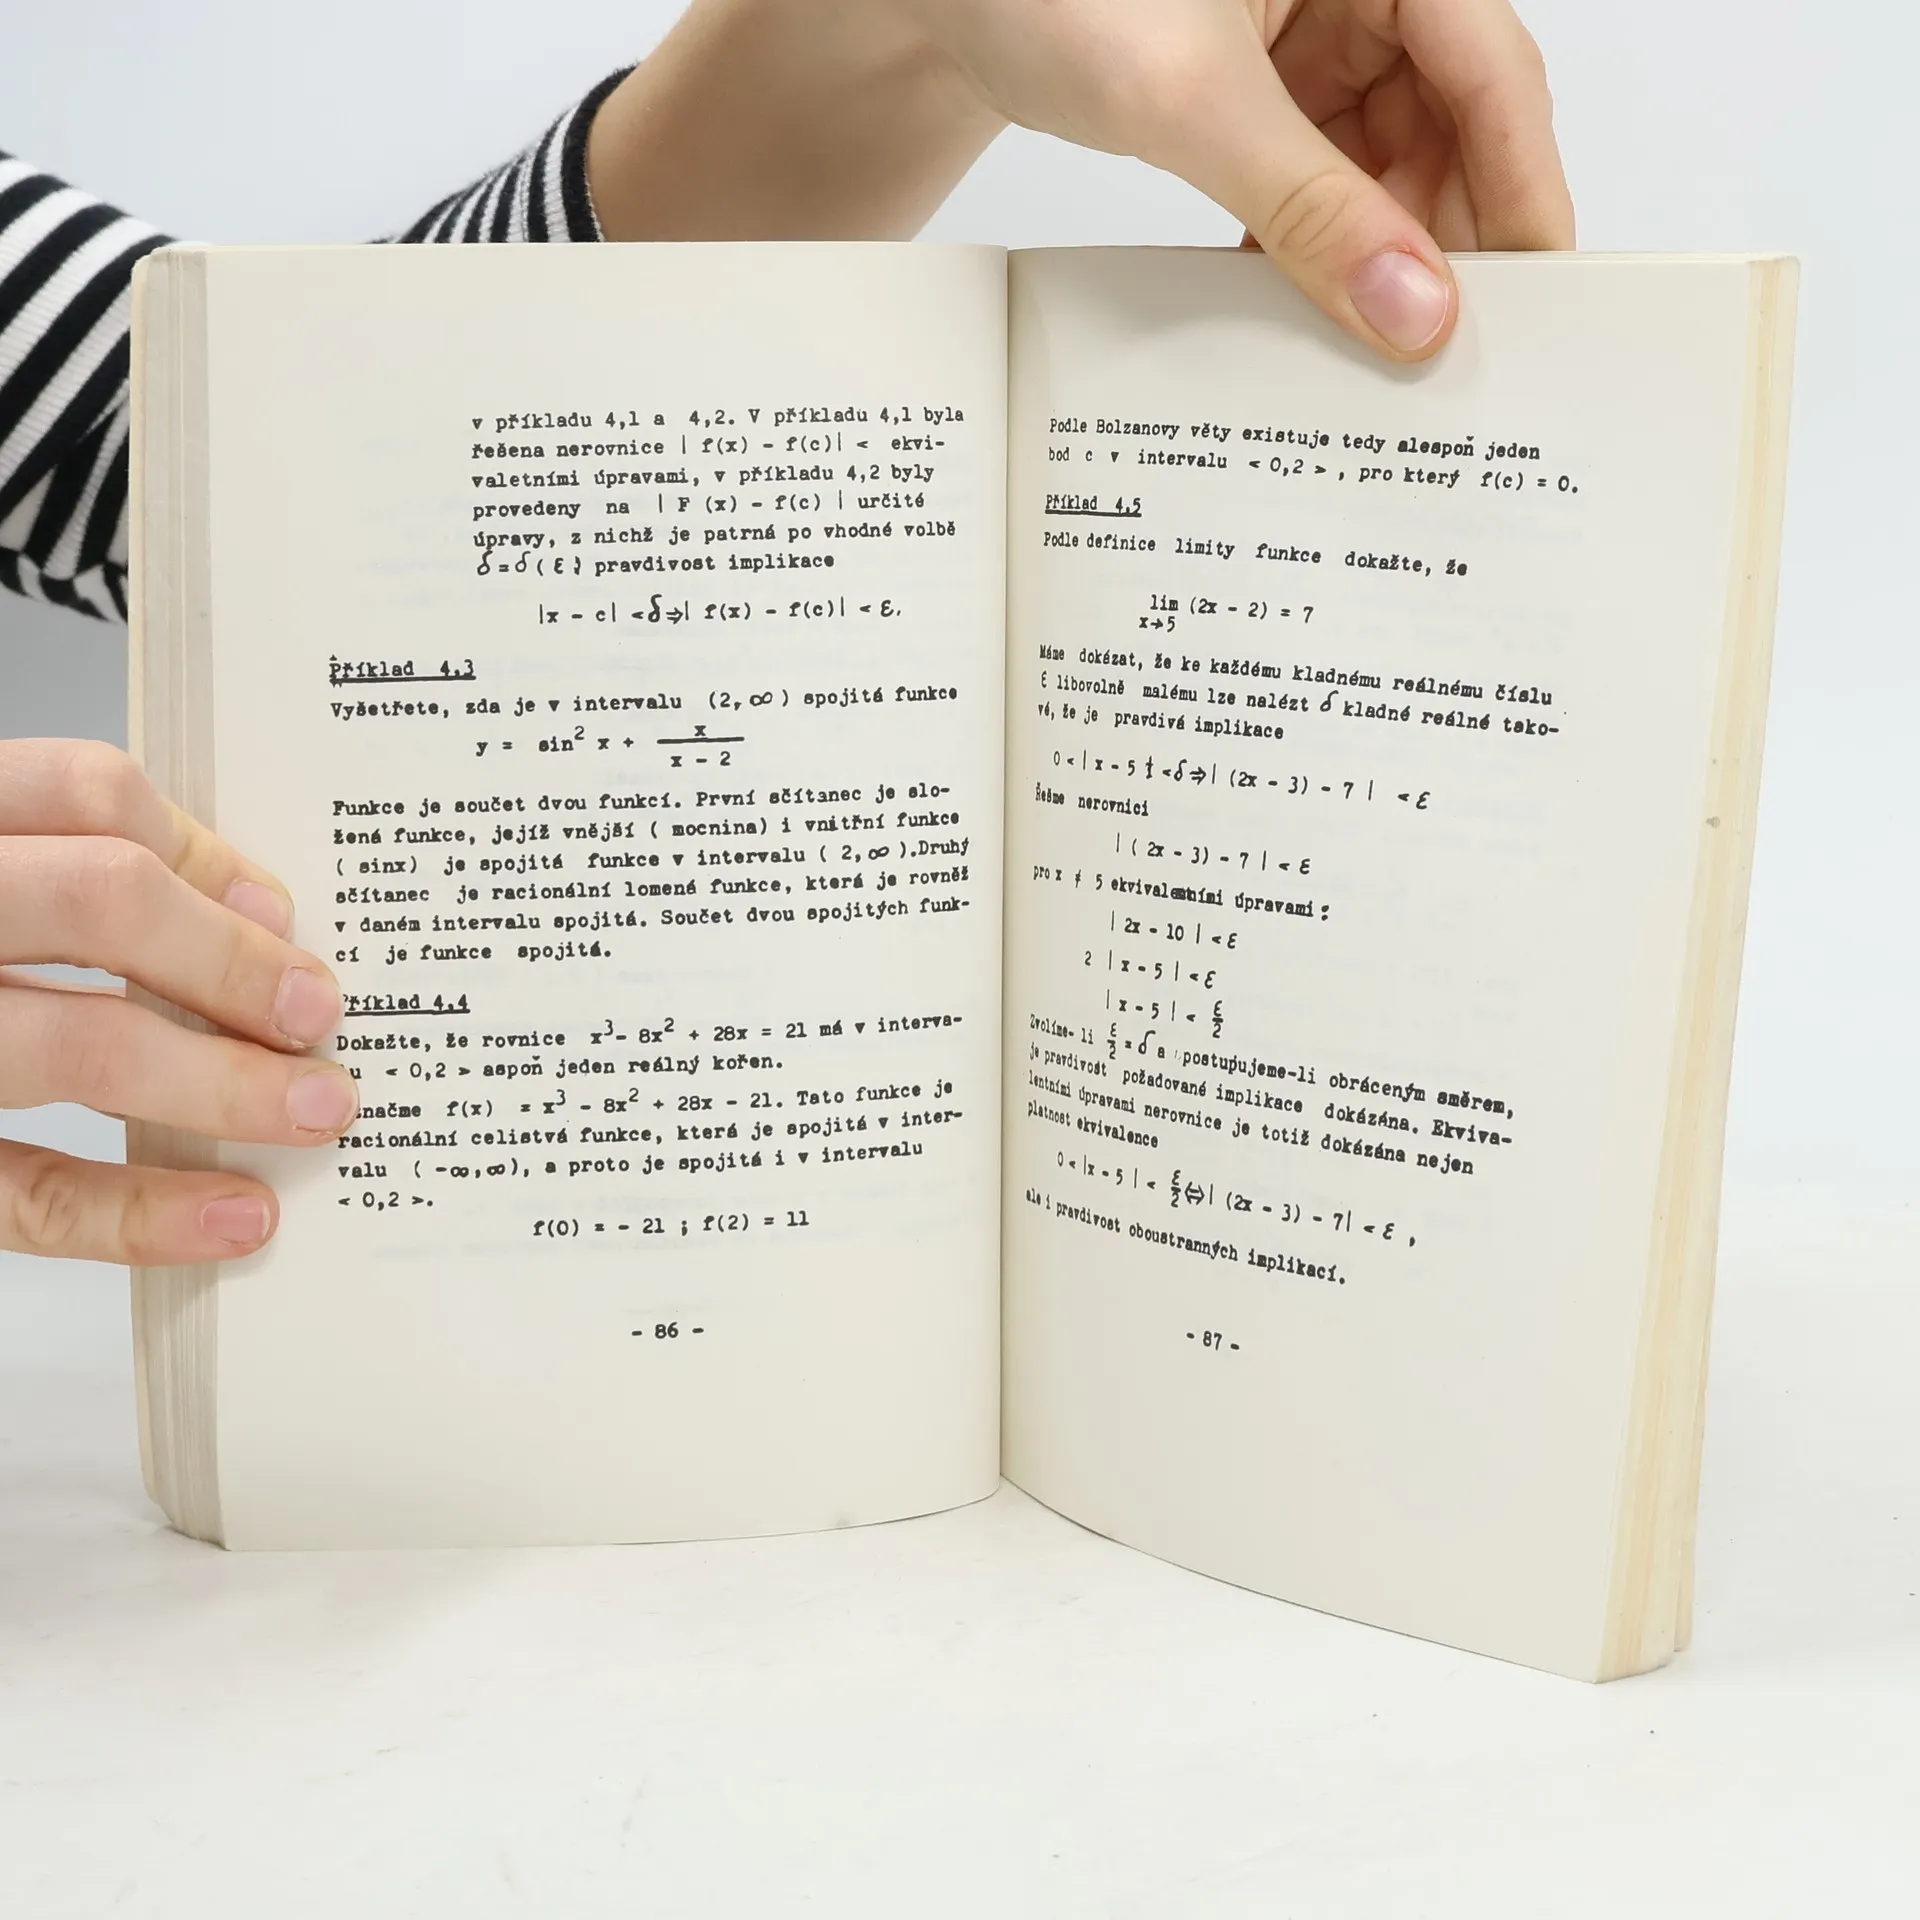 v příkladu 4,1 a 4,2. V příkladu 4,1 byla
řešena nerovnice | f(x) - f(c)| < ekvi-
valetními úpravami, v příkladu 4,2 byly
provedeny na | F (x) - f(c) | určité
úpravy, z nichž je patrná po vhodné volbě
δ = δ ( ε ) pravdivost implikace
|x - c| < δ ⇒ | f(x) - f(c)| < ε.
Příklad 4.3
Vyšetřete, zda je v intervalu (2, ∞ ) spojitá funkce
y = sin² x + x / (x - 2)
Funkce je součet dvou funkcí. První sčítanec je slo-
žená funkce, jejíž vnější ( mocnina) i vnitřní funkce
( sinx) je spojitá funkce v intervalu ( 2, ∞ ).Druhý
sčítanec je racionální lomená funkce, která je rovněž
v daném intervalu spojitá. Součet dvou spojitých funk-
cí je funkce spojitá.
říklad 4.4
Dokažte, že rovnice x³- 8x² + 28x = 21 má v interva-
u < 0,2 > aspoň jeden reálný kořen.
načme f(x) = x³ - 8x² + 28x - 21. Tato funkce je
racionální celistvá funkce, která je spojitá v inter-
valu ( -∞,∞), a proto je spojitá i v intervalu
< 0,2 >.
f(0) = - 21 ; f(2) = 11
- 86 -
Podle Bolzanovy věty existuje tedy alespoň jeden
bod c v intervalu < 0,2 > , pro který f(c) = 0.
Příklad 4.5
Podle definice limity funkce dokažte, že
lim (2x - 2) = 7
x→5
Máme dokázat, že ke každému kladnému reálnému číslu
ε libovolně malému lze nalézt δ kladné reálné tako-
vé, že je pravdivá implikace
0 < | x - 5 | < δ ⇒ | (2x - 3) - 7 | < ε
Řešme nerovnici
| ( 2x - 3) - 7 | < ε
pro x ≠ 5 ekvivalentními úpravami :
| 2x - 10 | < ε
2 | x - 5 | < ε
| x - 5 | < ε/2
Zvolíme- li ε/2 = δ a postupujeme-li obráceným směrem,
je pravdivost požadované implikace dokázána. Ekviva-
lentními úpravami nerovnice je totiž dokázána nejen
platnost ekvivalence
0 < |x - 5 | < ε/2 ⇔ | (2x - 3) - 7| < ε ,
ale i pravdivost oboustranných implikací.
- 87 -